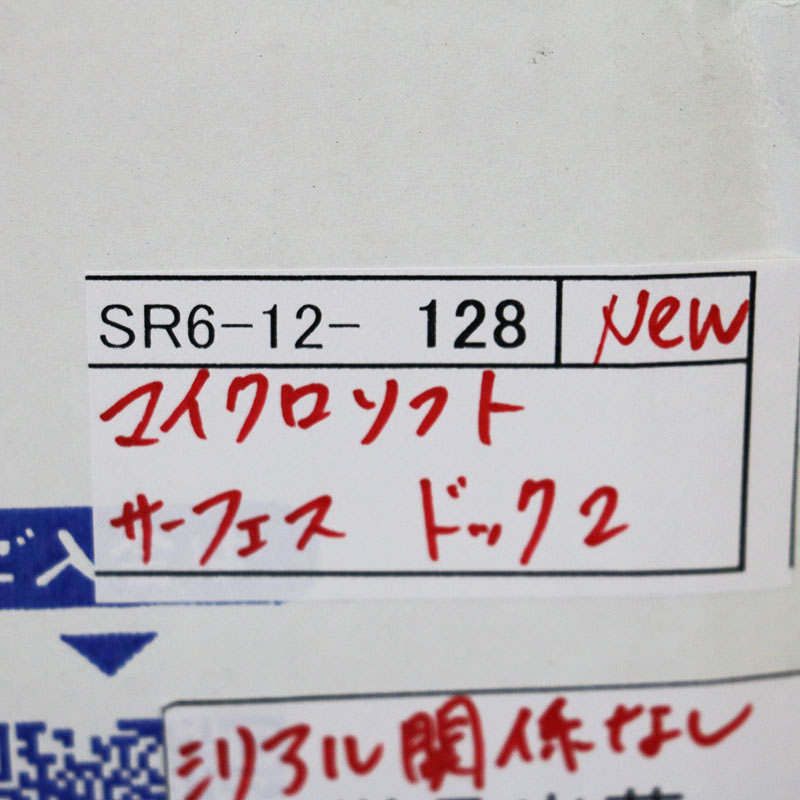 SR6-12- 128 New
マイクロソフト
サーフェス ドック2
シリアル関係なし